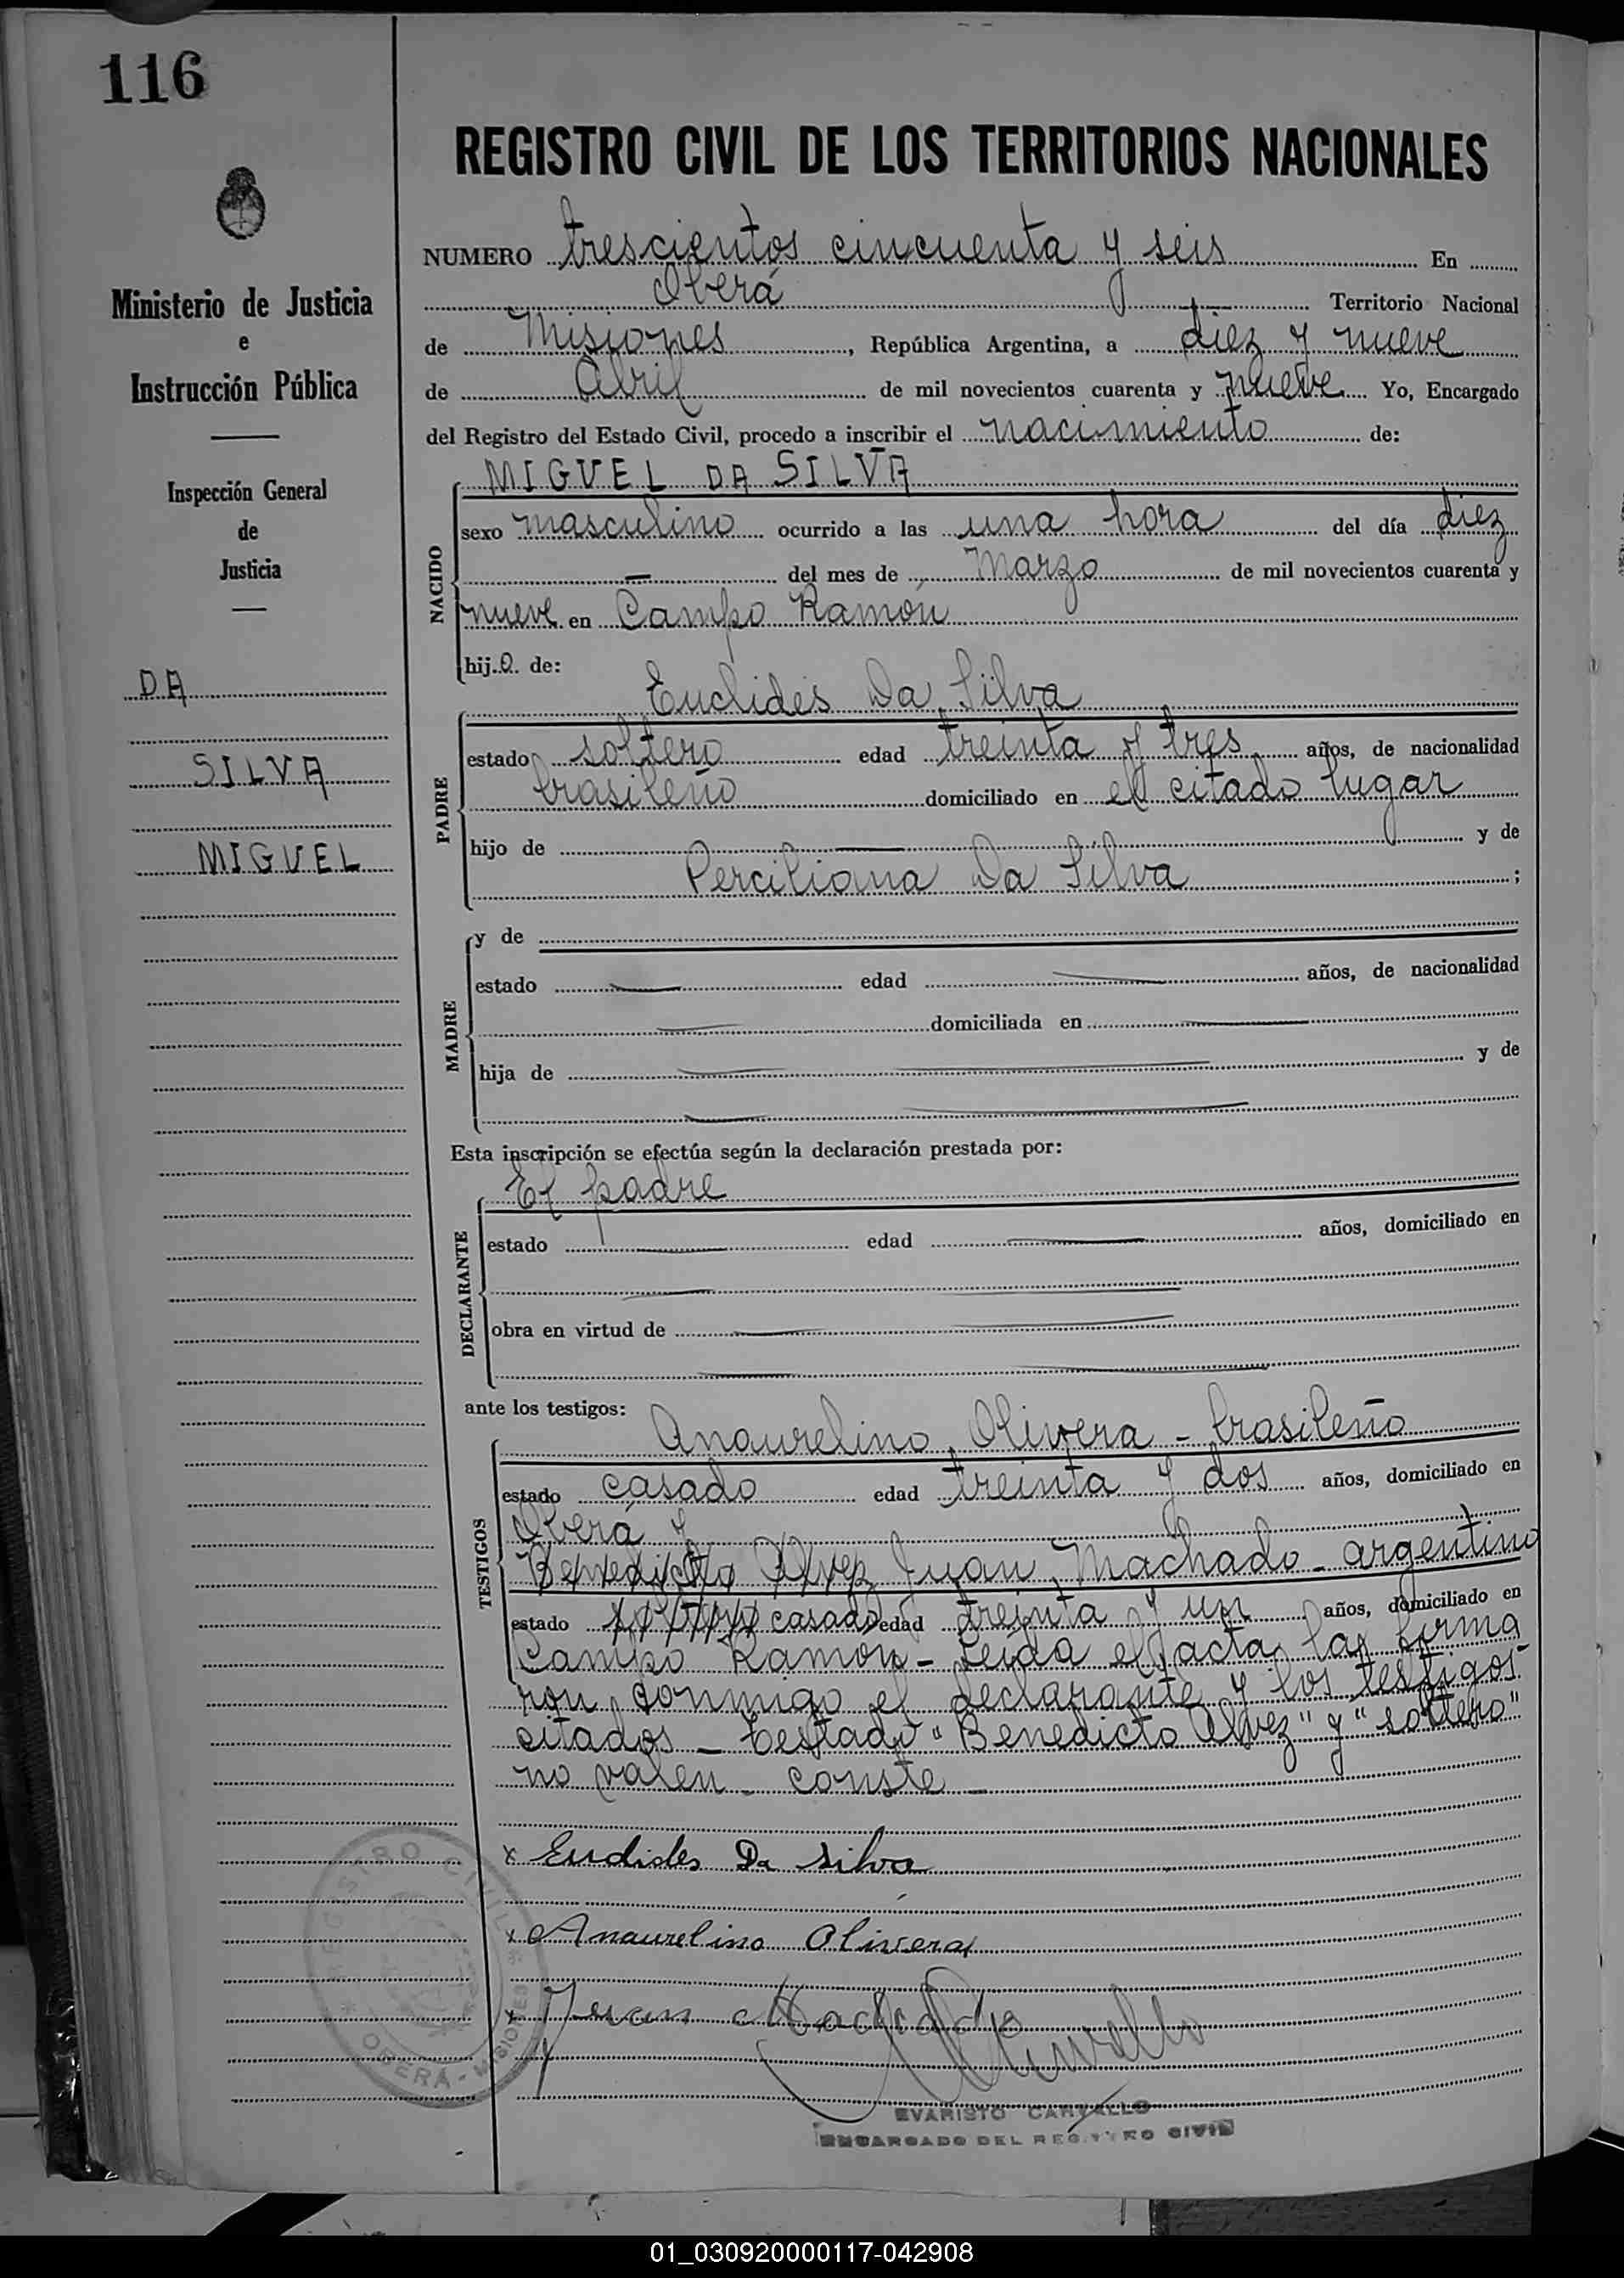 116
REGISTRO CIVIL DE LOS TERRITORIOS NACIONALES
NUMERO trescientos cincuenta y seis En
Oberá Territorio Nacional
de Misiones, República Argentina, a diez y nueve
de Abril de mil novecientos cuarenta y nueve Yo, Encargado
del Registro del Estado Civil, procedo a inscribir el nacimiento de:
Ministerio de Justicia
e
Instrucción Pública
Inspección General
de
Justicia
DA
SILVA
MIGUEL
NACIDO
MIGUEL DA SILVA
sexo masculino ocurrido a las una hora del día diez
— del mes de Marzo de mil novecientos cuarenta y
nueve en Campo Ramón
hijo de:
PADRE
Euclides Da Silva
estado soltero edad treinta y tres años, de nacionalidad
brasileño domiciliado en el citado lugar
hijo de — y de
Perciliana Da Silva ;
MADRE
y de
estado — edad — años, de nacionalidad
— domiciliada en —
hija de — — y de
— —
Esta inscripción se efectúa según la declaración prestada por:
DECLARANTE
El padre
estado — edad — años, domiciliado en
— —
obra en virtud de — —
— —
ante los testigos:
TESTIGOS
Anaurelino Olivera - brasileño
estado casado edad treinta y dos años, domiciliado en
Oberá y
Benedicto Alvez Juan Machado - argentino
estado soltero casado edad treinta y un años, domiciliado en
Campo Ramón - Leída el acta la firma
ron conmigo el declarante y los testigos
citados - Testado "Benedicto Alvez" y "soltero"
no valen - conste -
x Euclides Da Silva
x Anaurelino Olivera
x Juan Machado
REGISTRO CIVIL
OBERÁ - MISIONES
EVARISTO CARVALLO
ENCARGADO DEL REGISTRO CIVIL
01_030920000117-042908